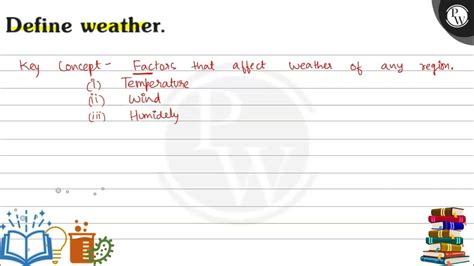 Define weather.
Key Concept - Factors that affect weather of any region.
(i) Temperature
(ii) Wind
(iii) Humidely
PW
PW